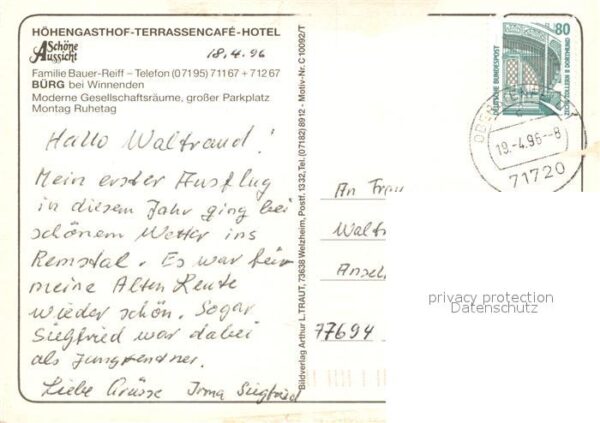 HÖHENGASTHOF-TERRASSENCAFÉ-HOTEL
Schöne
Aussicht
18.4.96
Familie Bauer-Reiff – Telefon (07195) 71167 + 71267
BÜRG bei Winnenden
Moderne Gesellschaftsräume, großer Parkplatz
Montag Ruhetag
Hallo Waltraud!
Mein erster Ausflug
in diesem Jahr ging bei
schönem Wetter ins
Remstal. Es war für
meine Alten Leute
wieder schön. Sogar
Siegfried war dabei
als Jungrentner.
Liebe Grüsse Irma Siegfried
Bildverlag Arthur L. TRAUT, 73638 Welzheim, Postf. 1332, Tel. (07182) 8912 - Motiv-Nr. C 10092/T
80
DEUTSCHE BUNDESPOST
ZECHE ZOLLERN II DORTMUND
19.-4.96-8
71720
An Frau
Waltr
Ansel
77694
privacy protection
Datenschutz